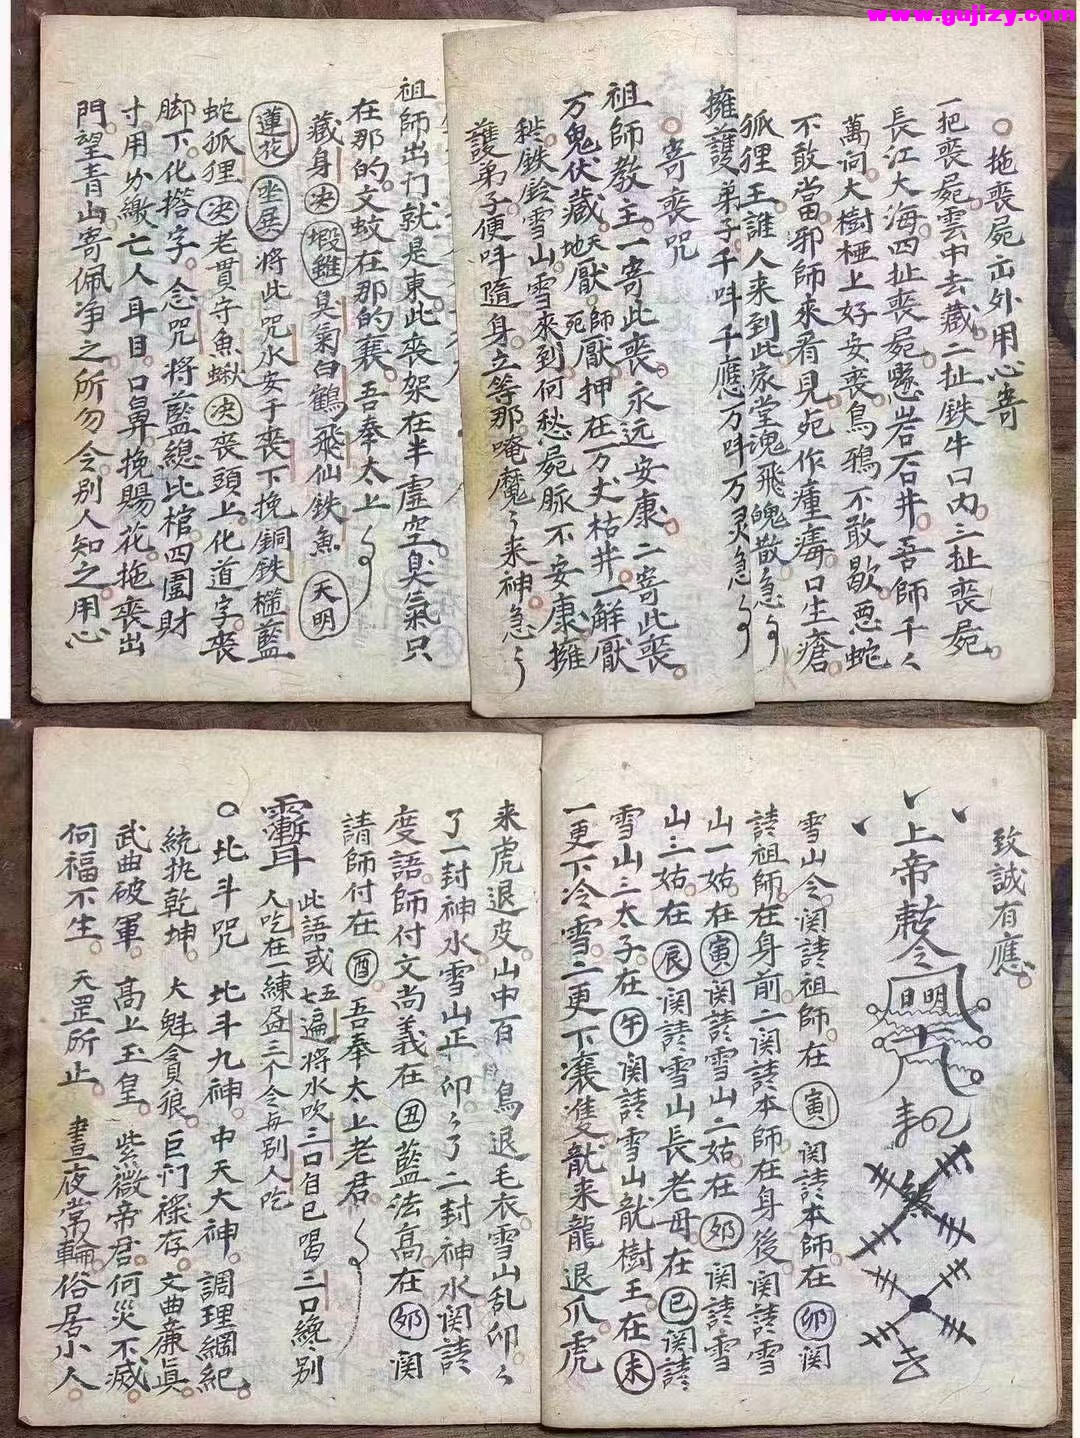 www.gujizy.com
拖喪屍出外用心寄
一把喪屍雲中去藏二扯鉄牛口内三扯喪屍
長江大海四扯喪屍懸岩石井吾師千々
萬向大樹椏上好安喪鳥鴉不敢歇惡蛇
不敢當邪師來看見宛作瘴毒口生瘡
狐狸王誰人来到此家堂鬼飛魄散急
擁護弟子千吽千應万吽万灵急
寄喪咒
祖師教主一寄此喪永远安康二寄此喪
万鬼伏藏天厭地厭師厭死厭押在万丈枯井一解厭
鉄鈴雪山雪來到何愁屍脉不安康擁
護弟子便吽隨身立等那唵魔々来神急々
祖師出门就是東此喪架在半虚空臭氣只
在那的文蚊在那的裏吾奉太上
藏身決臭氣白鶴飛仙鉄魚天明
蓮花坐展将此咒水安于喪下挽銅鉄檻藍
蛇狐狸決老貫守魚蝌決喪頭上化道字喪
脚下化撘字念咒将藍總比棺四圍財
寸用分繳亡人耳目口鼻挽賜花拖喪出
門望青山寄佩净之所勿令别人知之用心
致誠有應
上帝敕令
日明
雪山令関請祖師在寅関請本師在卯関
請祖師在身前二関請本師在身後関請雪
山一姑在寅関請雪山二姑在夘関請雪
山三姑在辰関請雪山長老母在巳関請
雪山三太子在午関請雪山龍樹王在未
一更下冷雪二更下濃雙龍来龍退爪虎
来虎退皮山中百鳥退毛衣雪山乱卯々
了一封神水雪山正卯々了二封神水関請
度語師付文尚義在丑藍法高在夘関
請師付在酉吾奉太上老君
此語或五七遍将水吹三口自己喝三口纔别
人吃在一練盈三个令毎别人吃
北斗咒 北斗九神中天大神調理綱紀
統执乾坤 大魁貪狼巨门祿存文曲廉真
武曲破軍 高上玉皇 紫微帝君何災不滅
何福不生 天罡所止 晝夜常輪俗居小人